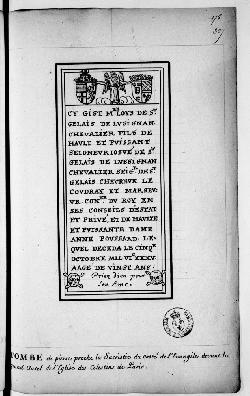 CY GIST Mre LOYS DE St
GELAIS DE LVSIGNAN
CHEVALIER FILS DE
HAVLT ET PVISSANT
SEIGNEVR IOSVÉ DE St
GELAIS DE LVSIGNAN
CHEVALIER SEIGr DE St
GELAIS CHEVREVX LE
COVDRAY ET
CONer DV ROY EN
SES CONSEILS D'ESTAT
ET PRIVÉ, ET DE HAVLTE
ET PVISSANTE DAME
ANNE POVSSARD. LE
QVEL DECEDA LE CINQe
OCTOBRE MIL VIc XXXV
AAGE DE VINGT ANS
Priez Dieu pour
son Ame.
TOMBE de pierre proche la Sacristie du costé de l'Evangile devant le
grand Autel de l'Eglise des Celestins de Paris.